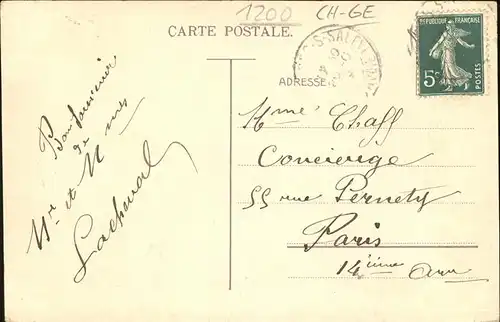 1200
CH-GE
CARTE POSTALE.
RÉPUBLIQUE FRANÇAISE
5c
POSTES
ADRESSE
Bon souvenir
de
Mr et Mme
Mme Chaff
Concierge
55 rue Pernety
Paris
14ième Arr